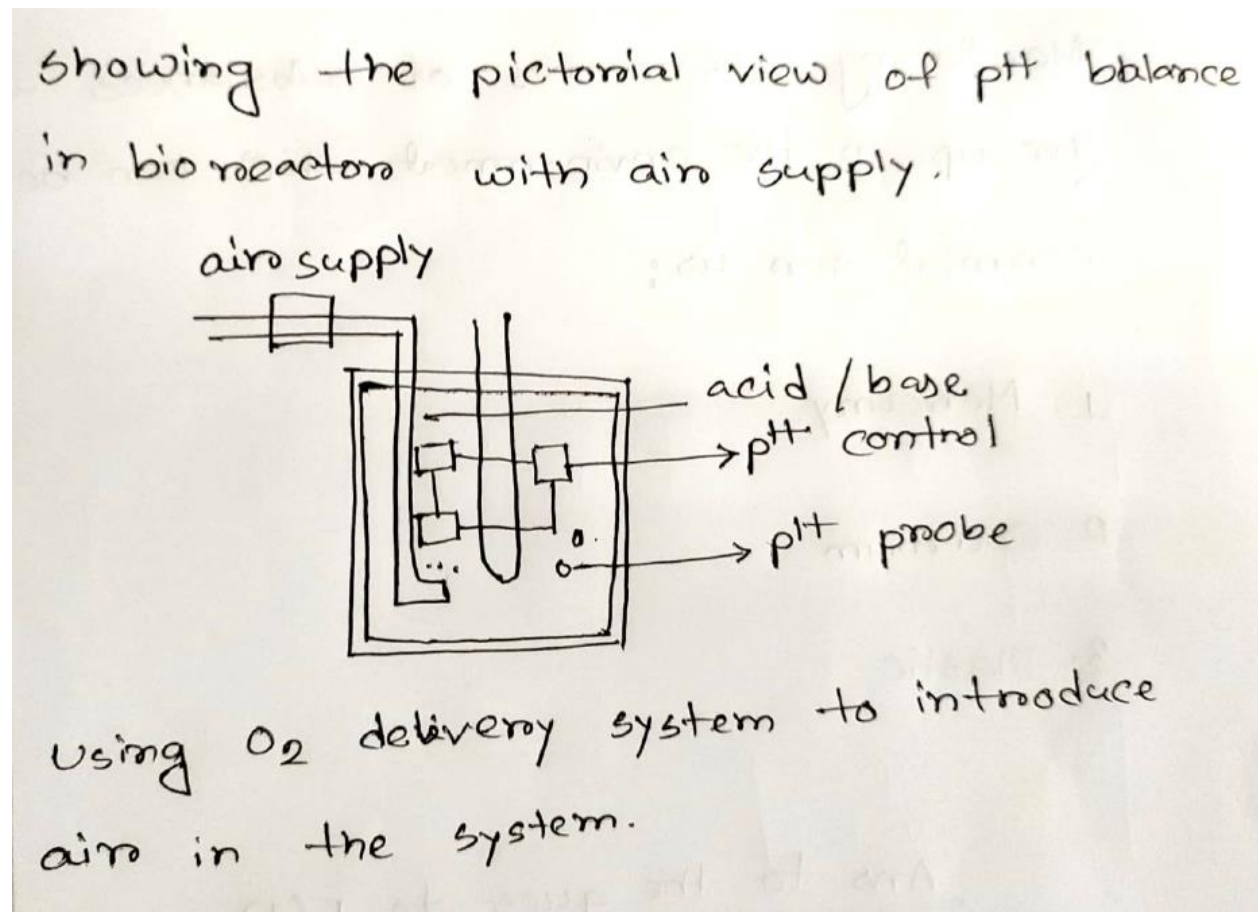 showing the pictorial view of pH balance
in bio reactor with air supply.
air supply
acid / base
pH control
pH probe
Using O2 delivery system to introduce
air in the system.